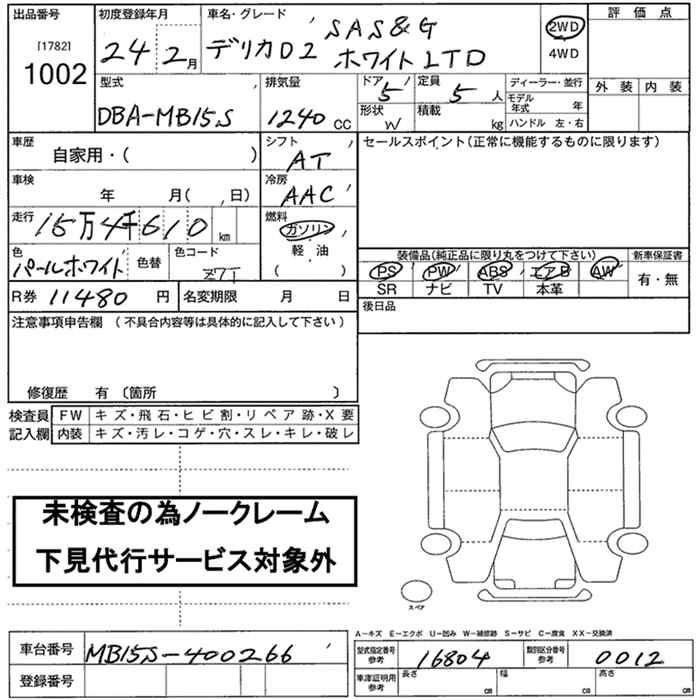 出品番号
[1782]
1002
初度登録年月
24 2月
車名・グレード
SAS&G
デリカD2 ホワイトLTD
2WD
4WD
評価点
外装 内装
型式
DBA-MB15S
排気量
1240 CC
ドア
5
形状
W
定員
5 人
積載
kg
ディーラー・並行
モデル年式 年
ハンドル 左・右
車歴
自家用・( )
シフト
AT
セールスポイント(正常に機能するものに限ります)
車検
年 月( , 日)
冷房
AAC
走行
15万4千610 km
燃料
ガソリン
軽・油
( )
色
パールホワイト
色替
色コード
Z7T
装備品(純正品に限り丸をつけて下さい)
PS PW ABS エアB AW
SR ナビ TV 本革
新車保証書
有・無
R券 11480 円
名変期限 月 日
後日品
注意事項申告欄 (不具合内容等は具体的に記入して下さい)
修復歴 有 〔箇所 〕
検査員記入欄
FW キズ・飛石・ヒビ割・リペア跡・X要
内装 キズ・汚レ・コゲ・穴・スレ・キレ・破レ
未検査の為ノークレーム
下見代行サービス対象外
スペア
A−キズ E−エクボ U−凹み W−補修跡 S−サビ C−腐食 XX−交換済
車台番号 MB15S-400266
登録番号
型式指定番号 参考 16804
類別区分番号 参考 0012
車庫証明用 参考
長さ cm
幅 cm
高さ cm